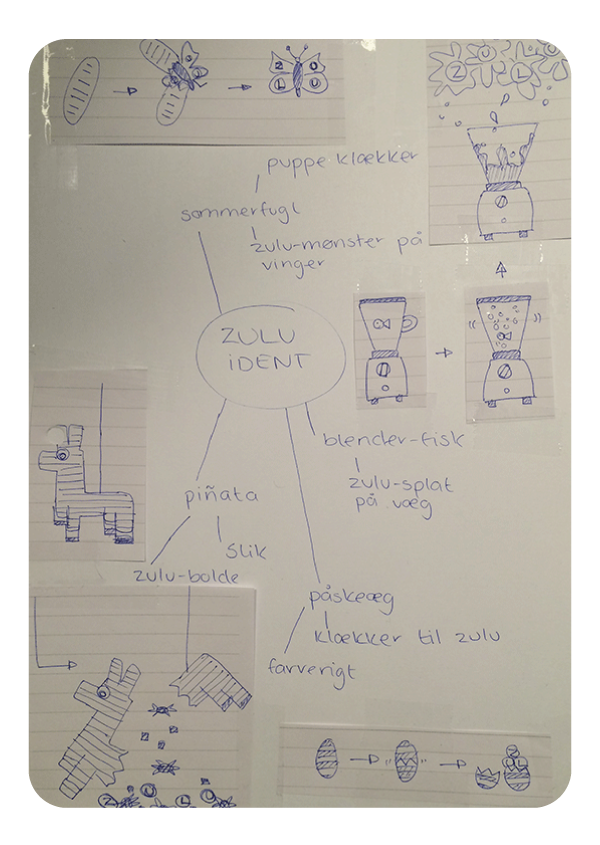 Z U
L U
Z U L U
puppe klækker
sommerfugl
zulu-mønster på
vinger
ZULU
iDENT
blender-fisk
zulu-splat
på væg
piñata
slik
zulu-bolde
påskeæg
klækker til zulu
farverigt
Z U L U
Z
U L